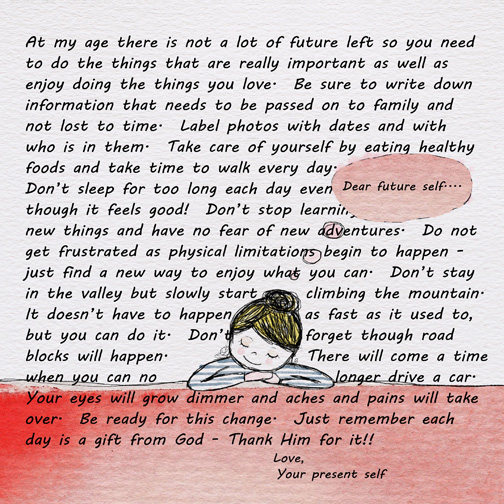 Dear future self....
At my age there is not a lot of future left so you need
to do the things that are really important as well as
enjoy doing the things you love. Be sure to write down
information that needs to be passed on to family and
not lost to time. Label photos with dates and with
who is in them. Take care of yourself by eating healthy
foods and take time to walk every day.
Don't sleep for too long each day even
though it feels good! Don't stop learning
new things and have no fear of new adventures. Do not
get frustrated as physical limitations begin to happen -
just find a new way to enjoy what you can. Don't stay
in the valley but slowly start climbing the mountain.
It doesn't have to happen as fast as it used to,
but you can do it. Don't forget though road
blocks will happen. There will come a time
when you can no longer drive a car.
Your eyes will grow dimmer and aches and pains will take
over. Be ready for this change. Just remember each
day is a gift from God - Thank Him for it!!
Love,
Your present self